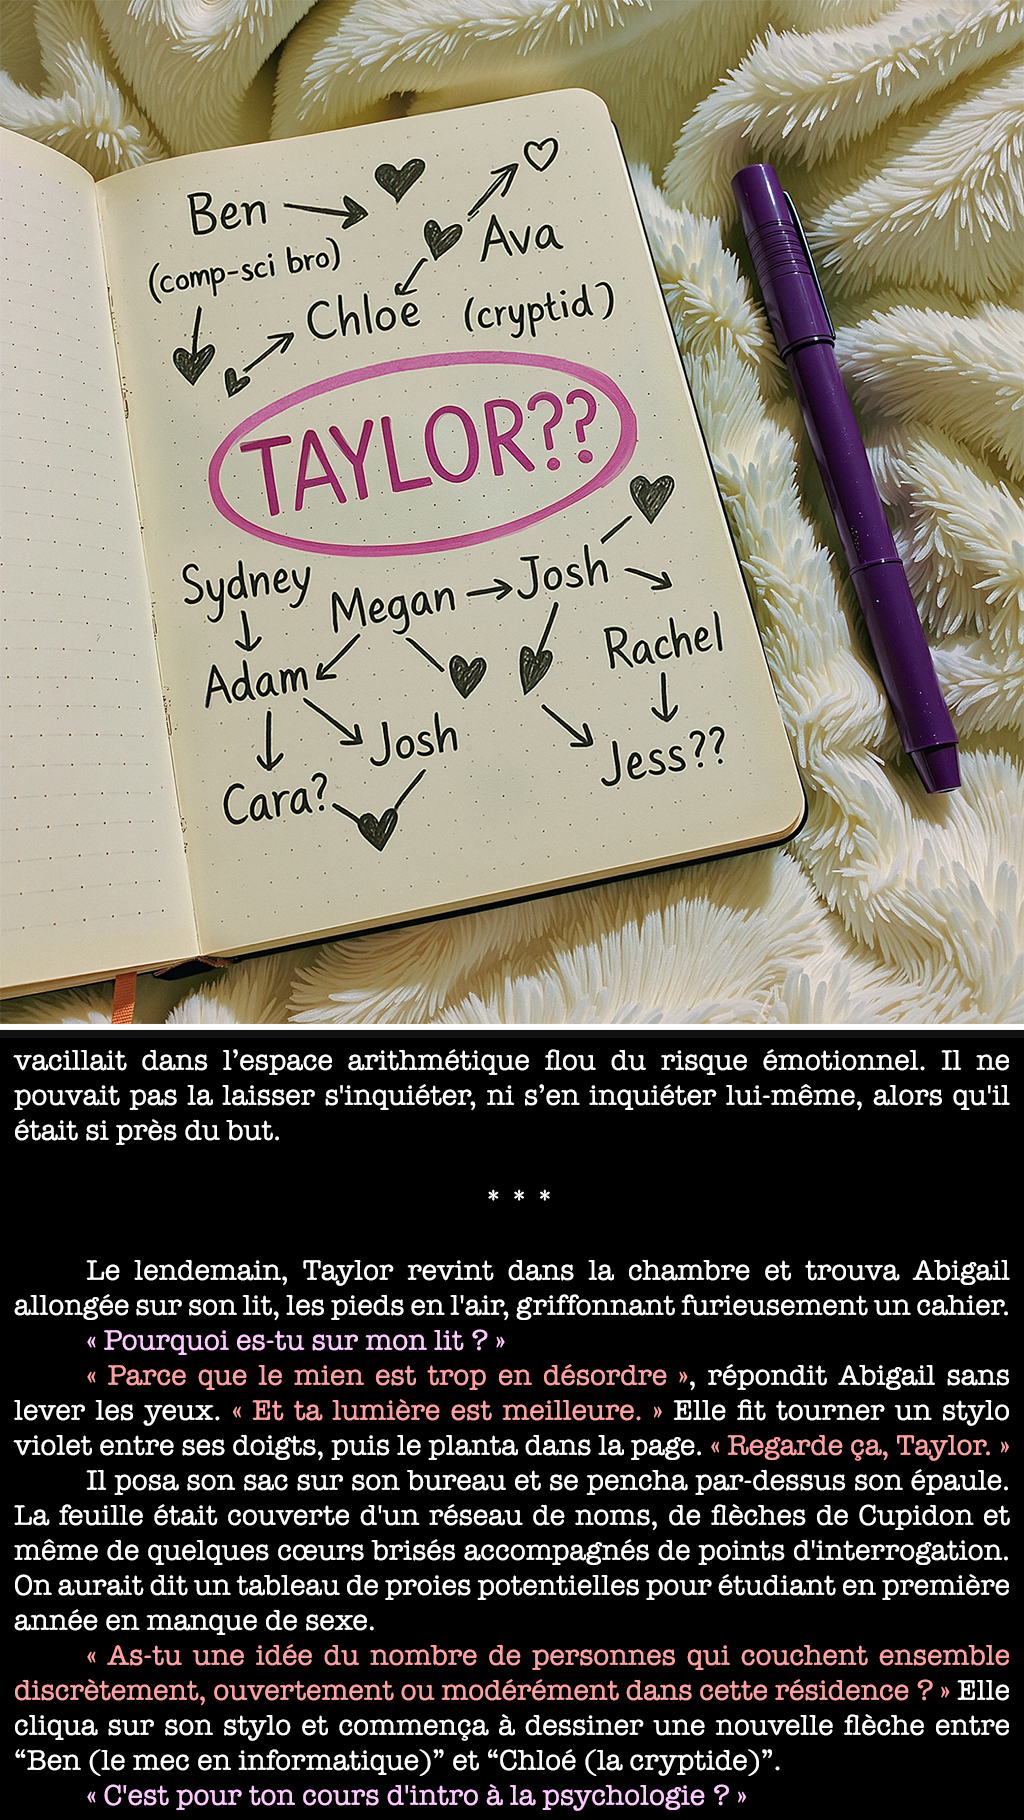 Ben
(comp-sci bro)
Ava
Chloe
(cryptid)
TAYLOR??
Sydney
Megan
Josh
Adam
Rachel
Josh
Jess??
Cara?
vacillait dans l’espace arithmétique flou du risque émotionnel. Il ne
pouvait pas la laisser s'inquiéter, ni s’en inquiéter lui-même, alors qu'il
était si près du but.
* * *
Le lendemain, Taylor revint dans la chambre et trouva Abigail
allongée sur son lit, les pieds en l'air, griffonnant furieusement un cahier.
« Pourquoi es-tu sur mon lit ? »
« Parce que le mien est trop en désordre », répondit Abigail sans
lever les yeux. « Et ta lumière est meilleure. » Elle fit tourner un stylo
violet entre ses doigts, puis le planta dans la page. « Regarde ça, Taylor. »
Il posa son sac sur son bureau et se pencha par-dessus son épaule.
La feuille était couverte d'un réseau de noms, de flèches de Cupidon et
même de quelques cœurs brisés accompagnés de points d'interrogation.
On aurait dit un tableau de proies potentielles pour étudiant en première
année en manque de sexe.
« As-tu une idée du nombre de personnes qui couchent ensemble
discrètement, ouvertement ou modérément dans cette résidence ? » Elle
cliqua sur son stylo et commença à dessiner une nouvelle flèche entre
“Ben (le mec en informatique)” et “Chloé (la cryptide)”.
« C'est pour ton cours d'intro à la psychologie ? »